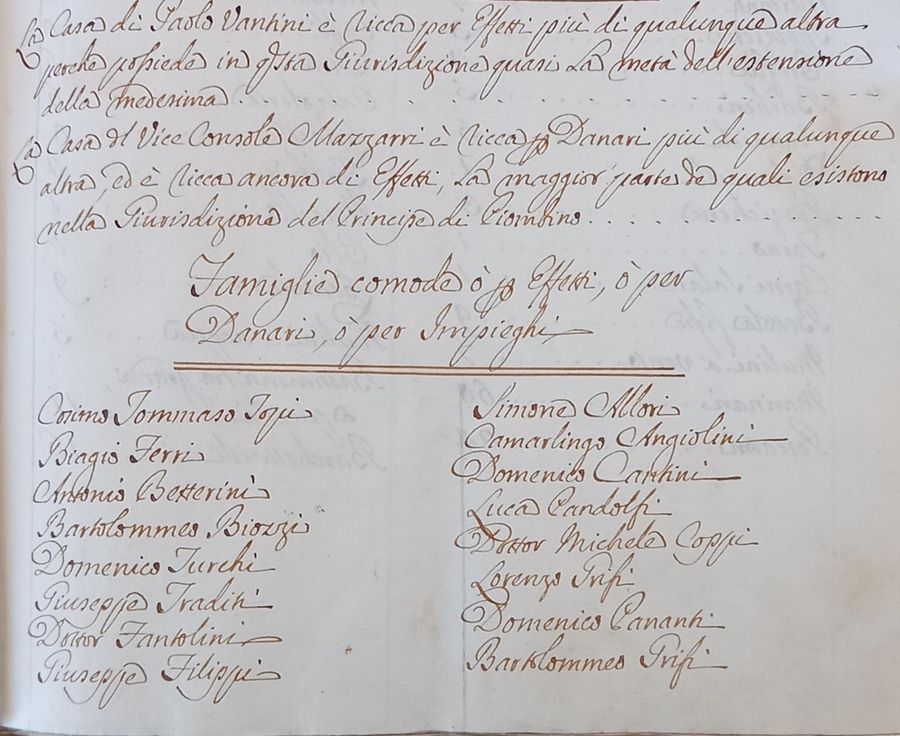 La Casa di Paolo Vantini è Ricca per Effetti più di qualunque altra
perche possiede in q̃sta Giurisdizione quasi La metà dell'estensione
della medesima . . . . . . . . . . .
La Casa dl Vice Console Mazzarri è Ricca ꝑ Danari più di qualunque
altra, ed è Ricca ancora di Effetti, La maggior parte de quali esistono
nella Giurisdizione del Principe di Piombino . . . . . . . .
Famiglie comode ò ꝑ Effetti, ò per
Danari, ò per Impieghi
Cosimo Tommaso Topi
Biagio Ferri
Antonio Betterini
Bartolommeo Biozzi
Domenico Turchi
Giuseppe Traditi
Dottor Fantolini
Giuseppe Filippi
Simone Allori
Camarlingo Angiolini
Domenico Cantini
Luca Pandolfi
Dottor Michele Coppi
Lorenzo Grifi
Domenico Pananti
Bartolommeo Grifi